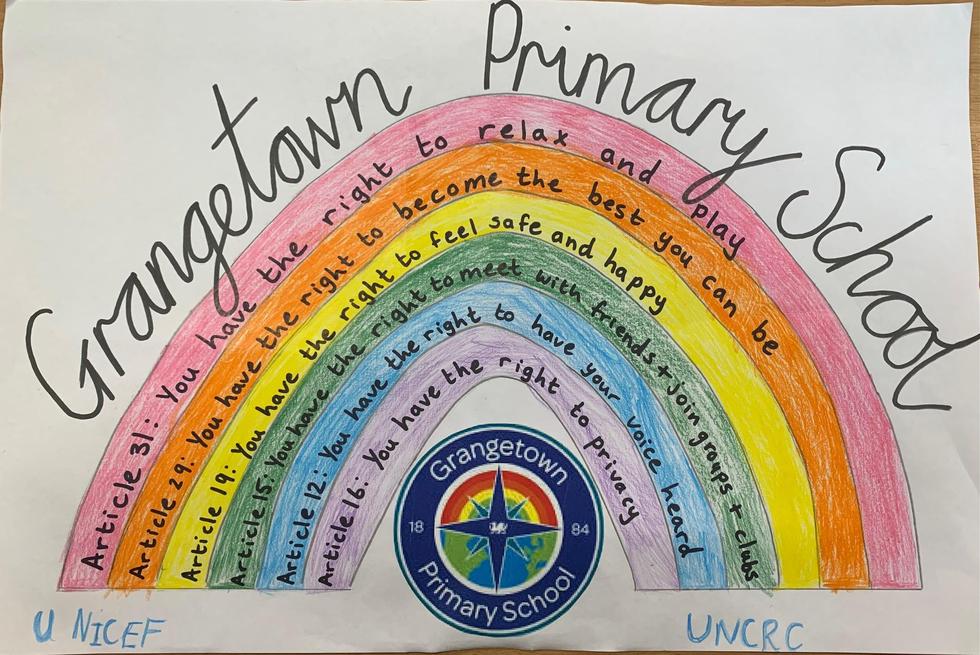 Grangetown Primary School
Article 31: You have the right to relax and play
Article 29: You have the right to become the best you can be
Article 19: You have the right to feel safe and happy
Article 15: You have the right to meet with friends + join groups + clubs
Article 12: You have the right to have your voice heard
Article 16: You have the right to privacy
Grangetown
18 84
Primary School
UNICEF
UNCRC